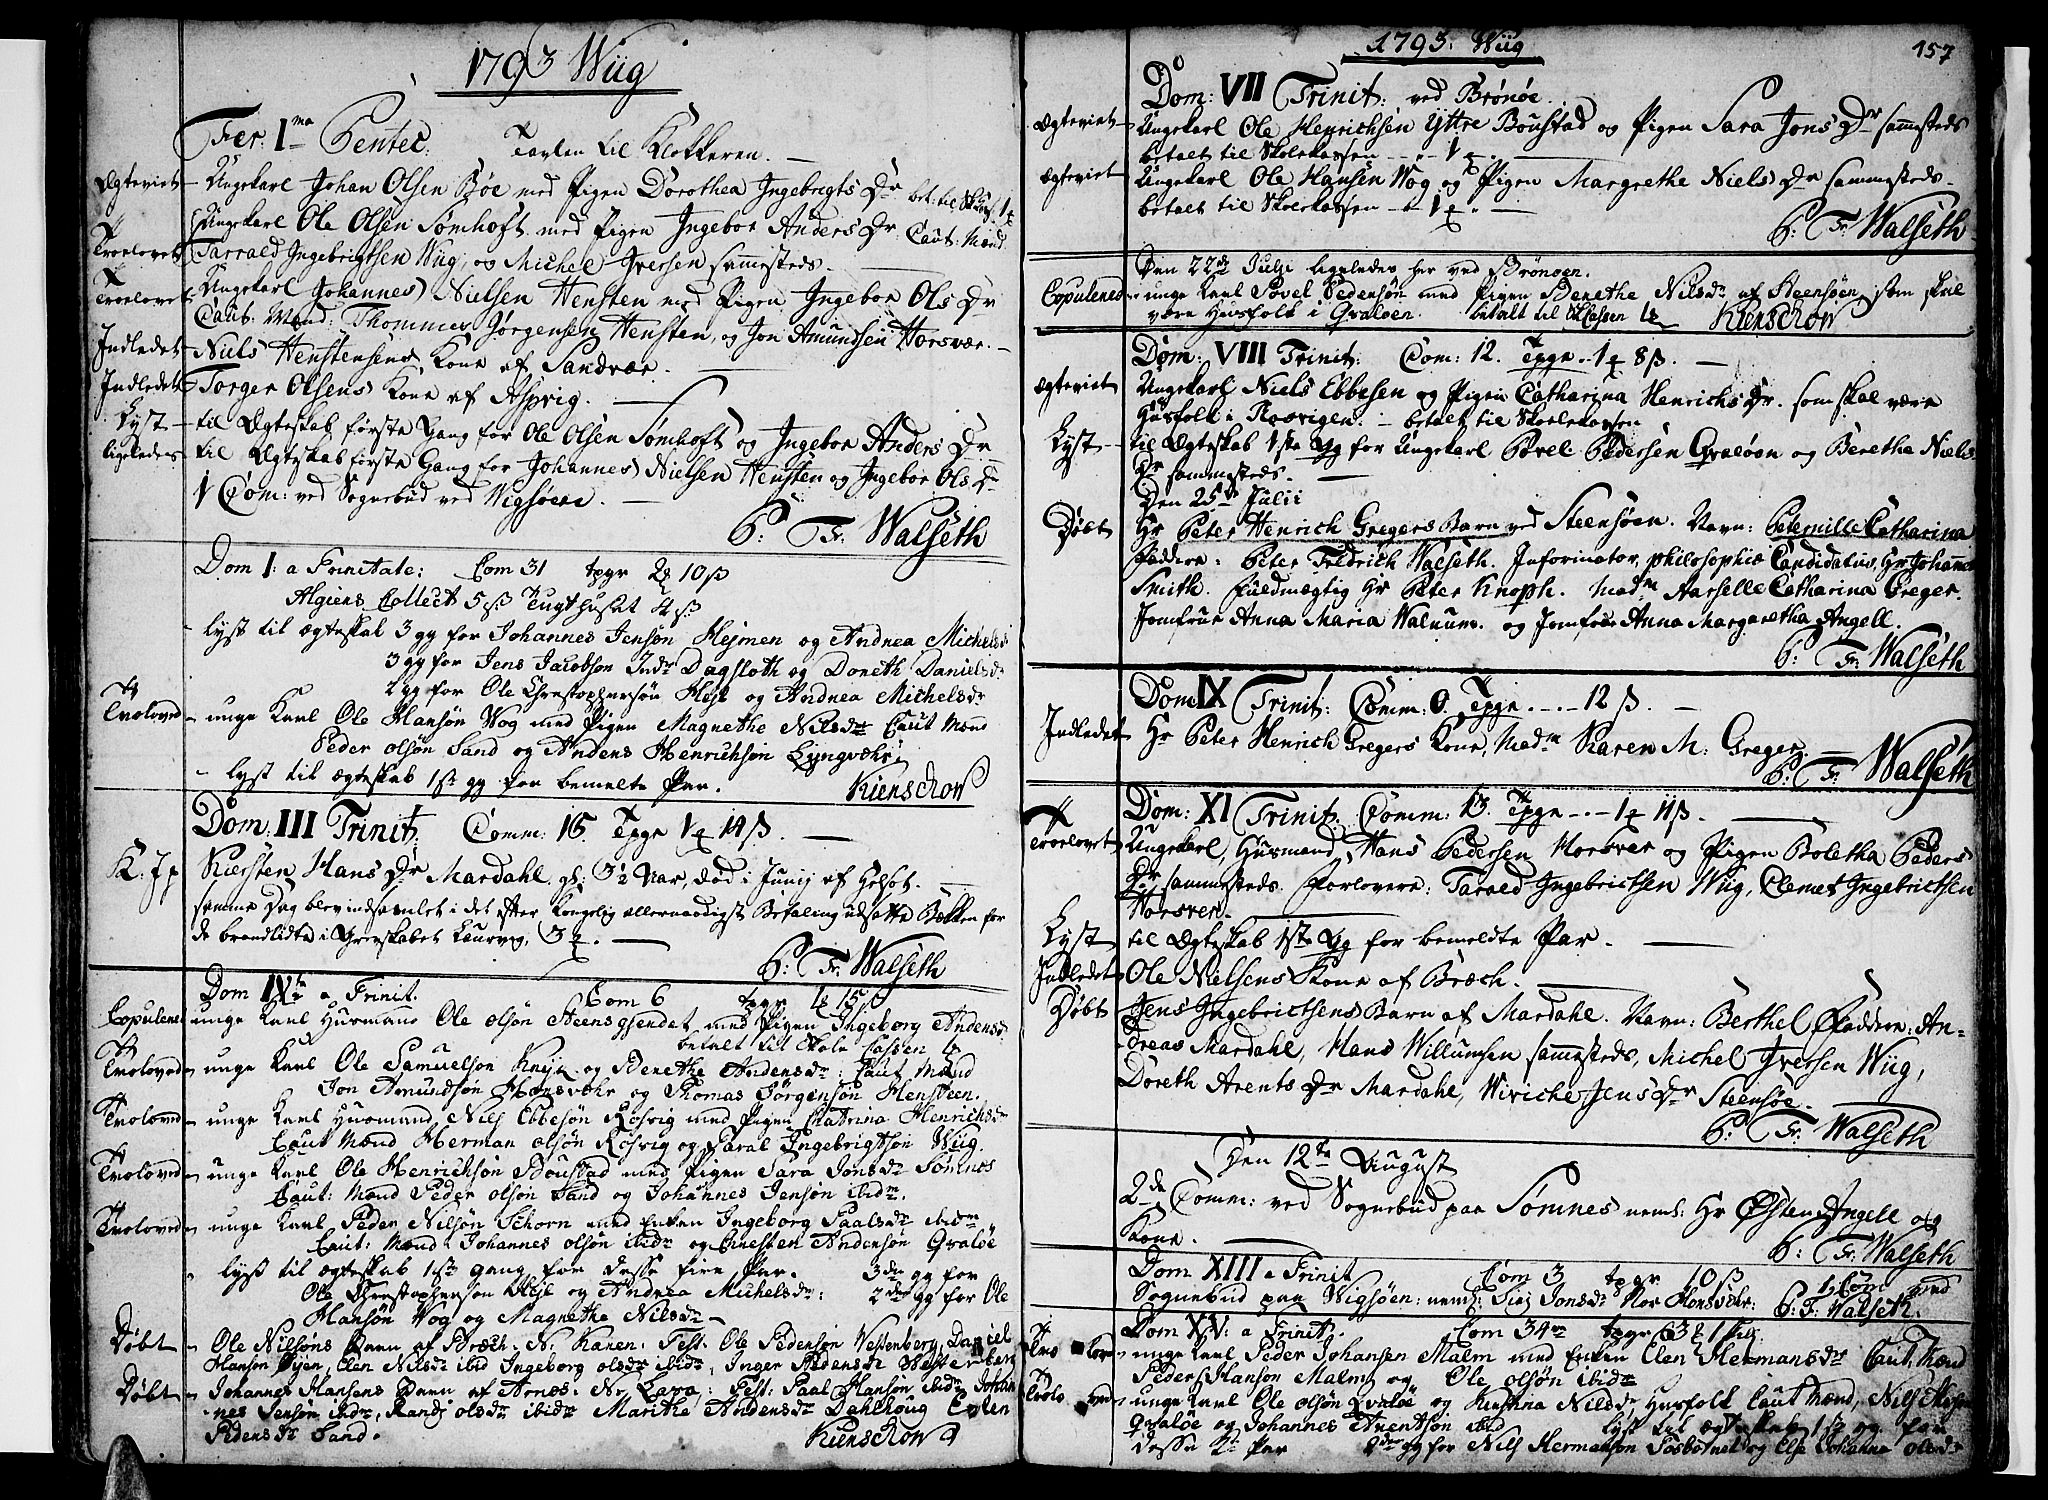 1793 Wiig
Fer: I ma Pentec: Tavlen til Klokkeren. —
Ægteviet – Ungekarl Johan Olsen Bøe med Pigen Dorothea Ingebrigts Dr bet: til Sk: 1
Ungekarl Ole Olsen Sømhoft med Pigen Ingebor Anders Dr Caut: Mænd
Troelovet Tarrald Ingebrigtsen Wiig, og Michel Iversen sammesteds.
Troelovet Ungekarl Johannes Nielsen Hensten med Pigen Ingebor Ols Dr
Caut. Mænd: Thommes Jørgensen Hensten, og Jon Amundsen Horsvær. —
Indledet – Niels Henstensens Kone af Sandvær.
Indledet Torger Olsens Kone af Aspvig.
Lyst – til Ægteskab første Gang for Ole Olsen Sømhoft og Ingebor Anders Dr
ligeledes til Ægteskab første Gang for Johannes Nielsen Hensten og Ingebor Ols Dr
1 Com: ved Sognebud ved Vigsøen. —
P: Fr: Walseth
Dom I: a Trinitate: Com 31 tpgr 2 10 ß
Collect 5 ß Tugthuset 4 ß
lyst til ægteskab 3 gg for Johannes Jensøn Hejmen og Andrea Michelsdr
3 gg for Jens Jacobsøn Dagsloth og Doreth Danielsdr
2 gg for Ole Christophersøn Heje og Andrea Michelsdr
Troloved – unge Karl Ole Hansøn Wog med Pigen Magrethe Nilsdr Caut Mænd
Peder olsøn Sand og Anders Henrichsøn Lyngvær
– lyst til ægteskab 1ste gg for bemelte Par.
Rienschow
Dom: III Trinit: Comm: 15. Tpgr 1 14 ß. —
K. Jp Kiersten Hans Dr Mardahl. gl: 3½ Aar, død i Junij af
samme Dag blev indsamlet i det efter Kongelig allernaadigst Befaling udsatte Bekken for
de brandlidte i Grevskabet Laurvig, 3. —
P: Fr: Walseth
Dom IV te a Trinit. Com 6 tpgr 1 15 ß
Copulered unge Karl Husmand Ole olsøn med Pigen Ingeborg Andersdr
betalt til Skole Cassen 1
Troloved – unge Karl Ole Samuelsøn og Berethe Andersdr: Caut Mænd
Jon Amundsøn Horsvær og Thomas Jørgensøn Hensteen.
Troloved – unge Karl Husmand Nils Ebbesøn Rosvig med Pigen Catrina Henrichsdr
Caut Mænd Herman olsøn Rosvig og Taral Ingebrigtsøn Wiig
Troloved – unge Karl Ole Henrichsøn Boustad med Pigen Sara Jonsdr Sømnes
Caut: Mænd Peder olsøn Sand og Johannes Jensøn ibidm.
Troloved – unge Karl Peder Nilsøn Schorn med Enken Ingeborg Paalsdr ibidm
Caut: Mænd Johannes olsøn ibidm og Andersøn Qvaløe
lyst til ægteskab 1ste gang for disse fire Par. 3die gg for
Ole Christophersøn Heje og Andrea Michelsdr: 2den gg for Ole
Hansøn Wog og Magrethe Nilsdr –
Døbt – Ole Nilsøns Barn af Bræch. N: Karen: Test. Ole Pedersøn Vestenberg Daniel
Hansøn Elen Nilsdr ibid Ingeborg olsdr ibidm, Inger Pedersdr Vestenberg
Døbt – Johannes Hansøns Barn af Arnes. N: Lava: Test: Paal Hansøn ibidm Johan
nes Jensøn ibidm, Randj olsdr ibidm Marithe Andersdr Dahlhoug Elen
Pedersdr Sand.
Rienschow
1793. Wiig 157
Dom: VII Trinit: ved Brönöe.
Ægteviet – Ungekarl Ole Henrichsen Yttre Boustad og Pigen Sara Jons Dr sammesteds
betalt til Skolekassen – – 1.
Ægteviet Ungekarl Ole Hansen Wog og Pigen Margrethe Niels Dr sammesteds.
betalt til Skolekassen – 1. —
P: Fr: Walseth
Den 22de Julij ligeledes her ved Brönöen.
Copulered unge Karl Povel Pedersøn med Pigen Berethe Nilsdr af Steensøen, som skal
være Huusfolk i Qvaløen. betalt til Cassen 1 Rienschow
Dom: VIII Trinit: Com: 12. Tpgr. 1 8 ß. —
Ægteviet Ungekarl Niels Ebbesen og Pigen Catharina Henrichs Dr. som skal være
Husfolk i Roesvigen. – betalt til Skolekassen
Lyst – til Ægteskab 1ste Gg for Ungekarl Povel Pedersen Qvaløen og Berethe Niels
Dr sammesteds. —
Den 25de Julii
Døbt Hr Peter Henrich Gregers Barn ved Steensøen. Navn: Peternille Catharina
Faddere: Peter Fredrich Walseth. Informator, philosophiæ Candidatus, Hr Johannes
Smith. Fuldmægtig Hr Peter Knoph. Madm Aarselle Catharina Greger.
Jomfrue Anna Maria Walnum. og Jomfrue Anna Margaretha Angell.
P: Fr: Walseth
Dom IX Trinit: Comm: 0. Tpgr. . . . 12 ß. —
Indledet Hr Peter Henrich Gregers Kone, Madm Karen M: Greger. —
P: Fr: Walseth
Dom: XI Trinit. Comm: 13. Tpgr – . – 1 11 ß. —
Troelovet Ungekarl, Husmand, Hans Pedersen Horsvær og Pigen Boletha Peders
Dr sammesteds. Forlovere: Tarald Ingebrictsen Wiig, Clemet Ingebrictsen
Horsver.
Lyst til Ægteskab 1ste Gg for bemeldte Par. —
Indledet Ole Nielsens Kone af Bræch. —
Døbt – Jens Ingebrictsens Barn af Mardahl. Navn: Berthel Faddere: An-
dreas Mardahl, Hans Willumsen sammesteds, Michel Iversen Wiig,
Doreth Arents Dr Mardahl, Wiriche Jens Dr Steensøe.
P: Fr: Walseth
Den 12te August
2de Comm: ved Sognebud paa Sømnes neml: Hr Østen Angell og
Kone.
P: Fr: Walseth
Dom XIII a Trinit Com 3 tpgr 10 ß 1 Com ved
Sognebud paa Wigsøen: neml: Jonsdr Horsvær: P: F: Walseth.
Dom XV: a Trinit. Com 34 tpgr 3 1
Tro loved – unge Karl Peder Johansen Malm med Enken Elen Hermansdr Caut: Mænd
Peder Hanson Malm og Ole olsøn ibidm
Trolo ved – unge Karl Ole olsøn Qvaløe og Nilsdr, Husfolk Caut Mænd, Nils
Qvaløe og Johannes ibid lyst til ægteskab 1ste gg for
disse 2 Par 2den gg for Nils Hermansøn og Else Johanna olsdr